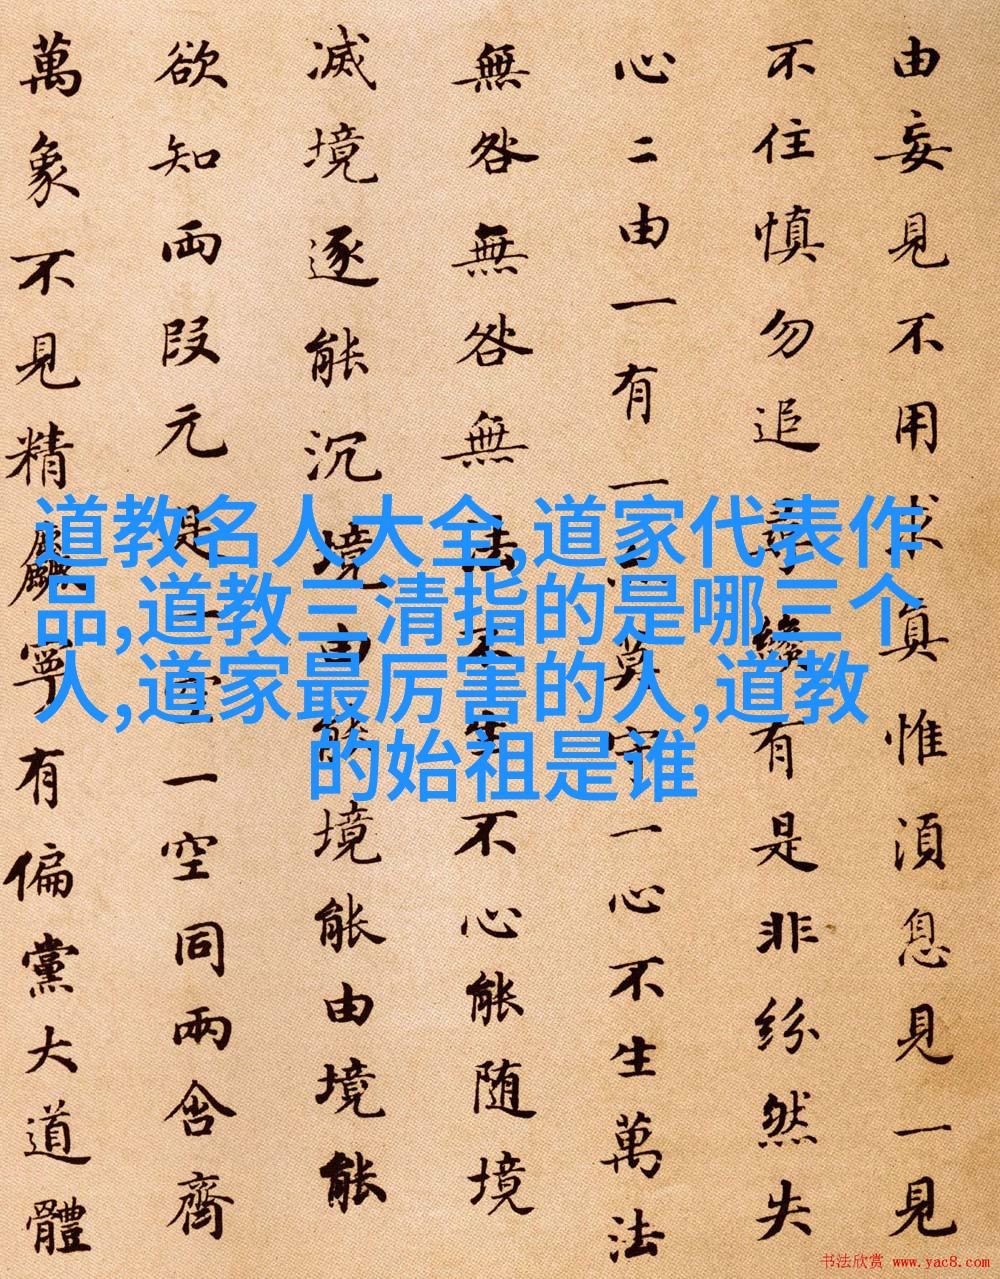 由妄見不用求真惟湏息見一見
不住慎勿追尋纔有是非紛然失
心二由一有一亦莫守一心不生萬法
無咎無咎無法不生不心能随境
滅境逐能沉境由能境能由境能
欲知兩段元是一空一空同兩含齊
萬象不見精麤寧有偏黨大道體
道教名人大全,道家代表作
品,道教三清指的是哪三个
人,道家最厉害的人,道教
的始祖是谁
书法欣赏 www.yac8.com